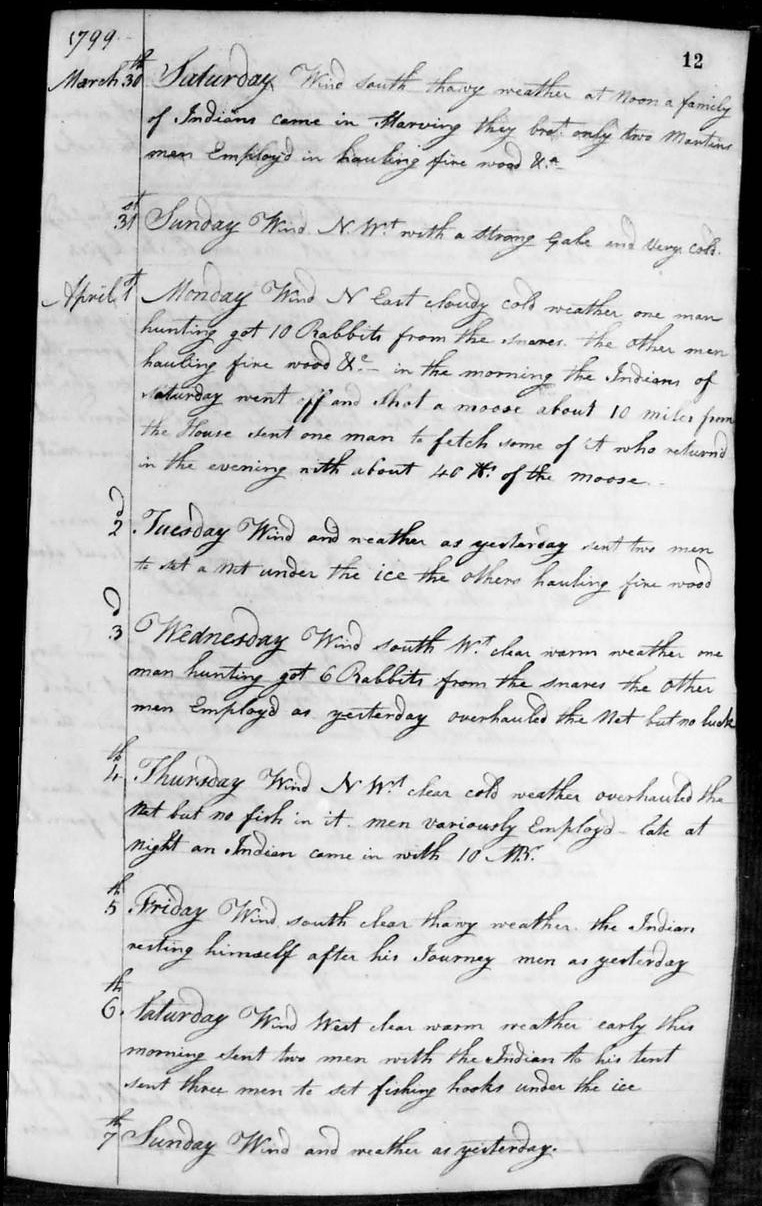 1799
12
March 30th Saturday Wind south thawy weather at Noon a family
of Indians came in starving they brot only two Martins
men Employ'd in hauling fire wood &a
31st Sunday Wind N Wt with a strong gale and very cold.
April 1st Monday Wind N East cloudy cold weather one man
hunting got 10 Rabbits from the snares. the other men
hauling fire wood &c in the morning the Indians of
saturday went off and shot a moose about 10 miles from
the House sent one man to fetch some of it who return'd
in the evening with about 40 lbs of the moose
2d Tuesday Wind and weather as yesterday sent two men
to set a Net under the ice the others hauling fire wood
3d Wednesday Wind south Wt clear warm weather one
man hunting got 6 Rabbits from the snares the other
men Employ'd as yesterday overhauled the Net but no luck
4th Thursday Wind N Wt clear cold weather overhauled the
Net but no fish in it. men variously Employ'd late at
night an Indian came in with 10 MBr.
5th Friday Wind south clear thawy weather. the Indian
resting himself after his Journey men as yesterday
6th Saturday Wind West clear warm weather early this
morning sent two men with the Indian to his tent
sent three men to set fishing hooks under the ice
7th Sunday Wind and weather as yesterday.